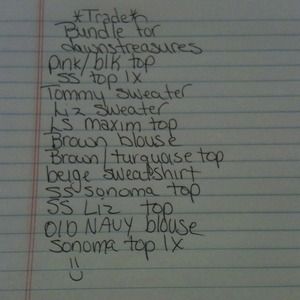 *Trade*
Bundle for
dawnstreasures
Pink/blk top
SS top 1X
Tommy sweater
Liz sweater
LS maxim top
Brown blouse
Brown/turquoise top
beige sweatshirt
SS sonoma top
SS Liz top
OLD NAVY blouse
sonoma top 1X